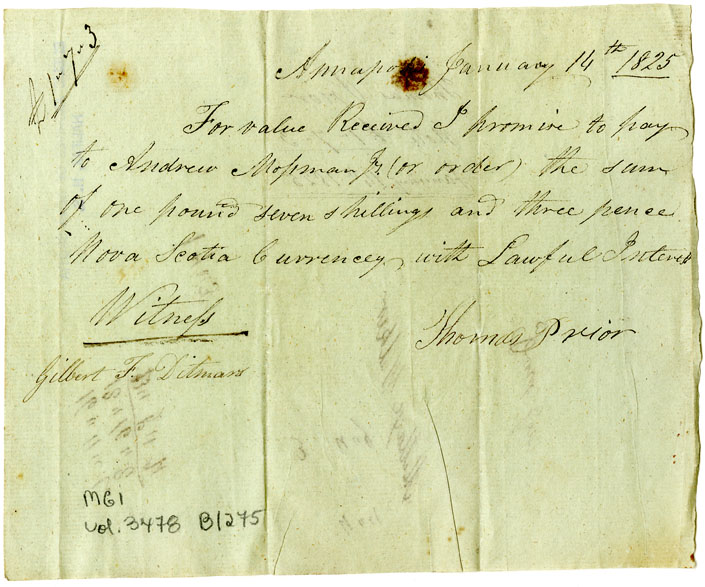 £1"7"3
Annapolis January 14th 1825
For value Received I promise to pay
to Andrew Mosman Jr. (or order) the sum
of one pound seven shillings and three pence
Nova Scotia Currencey with Lawful Interest
Witness
Thomas Prior
Gilbert F. Ditmars
MG1
vol. 3478 B1275